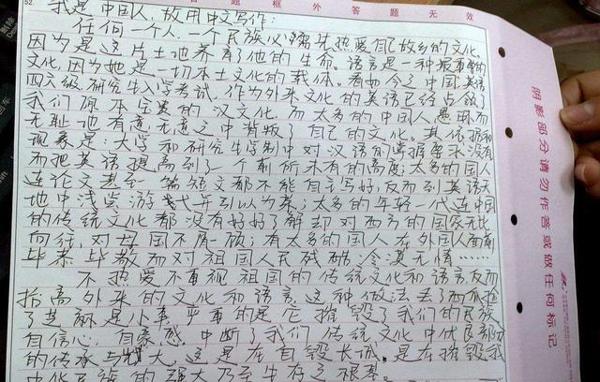 52
答题框外答题无效
我是中国人,故用中文写作:
任何一个人、一个民族必将先热爱自己故乡的文化,
因为是这片土地养育了他的生命。语言是一种最重要的
文化,因为她是一切本土文化的载体。看如今之中国,英语
四六级、研究生入学考试,作为外来文化的英语已经占领了
我们原本宝贵的汉文化。而太多的中国人愚昧而
无耻地有意无意之中背叛了自己的文化。其依据和
现象是:大学和研究生学制中对汉语的掌握要求没有
而把英语提高到了一个前所未有的高度;太多的国人
连论文甚至一篇短文都不能自主写好,反而到英语天
地中浅尝游戈并引以为豪;太多的年轻一代连中国
的传统文化都没有好好了解却对西方的国家无比
向往,对母国不屑一顾;有太多的国人在外国人面前
毕恭毕敬而对祖国人民残酷、冷漠无情……
不热爱不重视祖国的传统文化和语言,反而
抬高外来的文化和语言,这种做法丢了西瓜捡
了芝麻是小事,严重的是它摧毁了我们的民族
自信心、自豪感,中断了我们传统文化中优良部分
的传承与扩大,这是在自毁长城,是在摧毁我
中华民族的强大乃至生存之根基。
阴影部分请勿作答或做任何标记